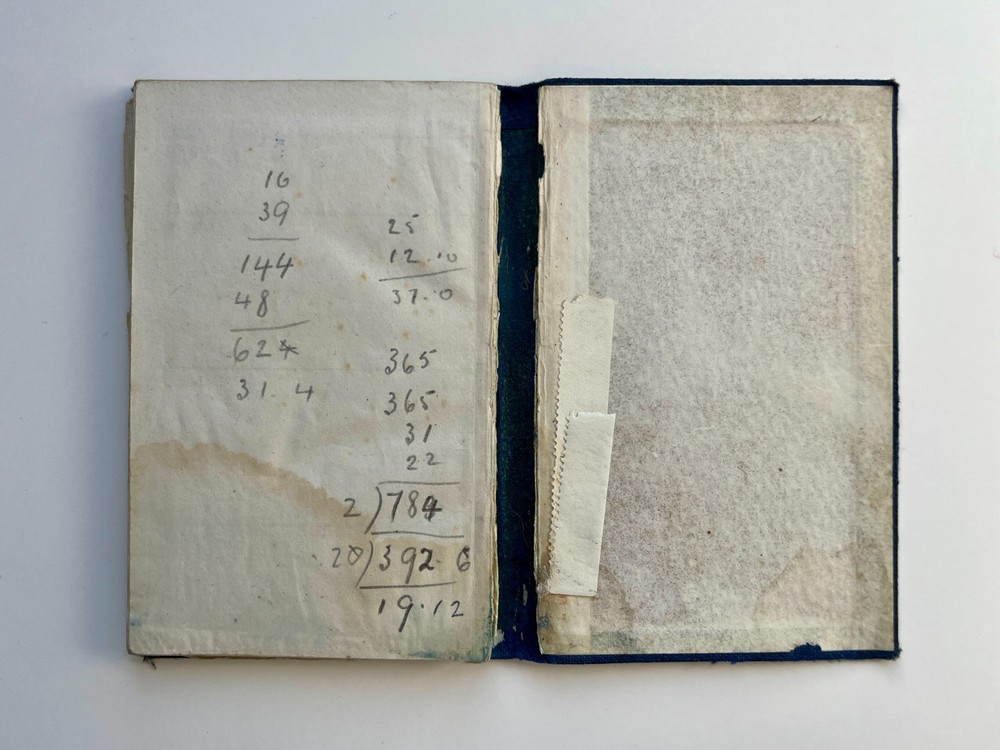 16
39
144
48
624
31. 4
25
12..10
37..0
365
365
31
22
2)784
20)392. 6
19.12